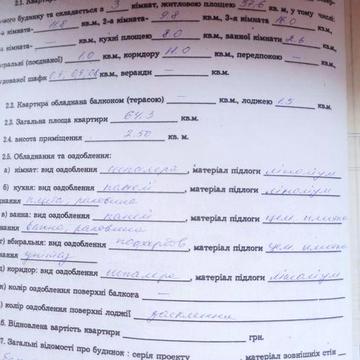 2.1. Квартира
ного будинку та складається з 3 кімнат, житловою площею 37.6 кв. м, у тому числі:
кімната- 11.8 кв.м, 2-а кімната- 9.8 кв.м, 3-я кімната 16.0 кв.м,
-а кімната- — кв.м, кухні площею 8.0 кв.м, ванної кімнати 2.6 кв.м
(поєднаної) 1.0 кв.м, коридору 11.0 кв.м, передпокою — кв.м,
удованої шафи кв.м, веранди — кв.м.
2.2. Квартира обладнана балконом (терасою) — кв.м., лоджією 1.5 кв.м.
2.3. Загальна площа квартири 64.3 кв.м.
2.4. висота приміщення 2.50 кв. м.
2.5. Обладнання та оздоблення:
а) кімнат: вид оздоблення шпалери, матеріал підлоги ліноліум
б) кухня: вид оздоблення панелі, матеріал підлоги ліноліум
нання плита, раковина
в) ванна: вид оздоблення панелі, матеріал підлоги цем. плитка
нання ванна, раковина
г) вбиральня: вид оздоблення, матеріал підлоги цем. плитка
нання унітаз
д) коридор: вид оздоблення шпалери, матеріал підлоги ліноліум
) колір оздоблення поверхні балкона —
) колір оздоблення поверхні лоджії засклення
6. Відновлена вартість квартири грн.
7. Загальні відомості про будинок : серія проекту, матеріал зовнішніх стін